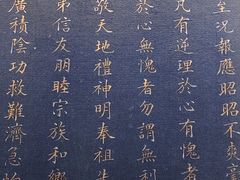 至況報應昭昭不爽毫
凡有逆理於心有愧者
於心無愧者勿謂無利
敬天地禮神明奉祖先
弟信友朋睦宗族和鄉
廣積陰功救難濟急恤